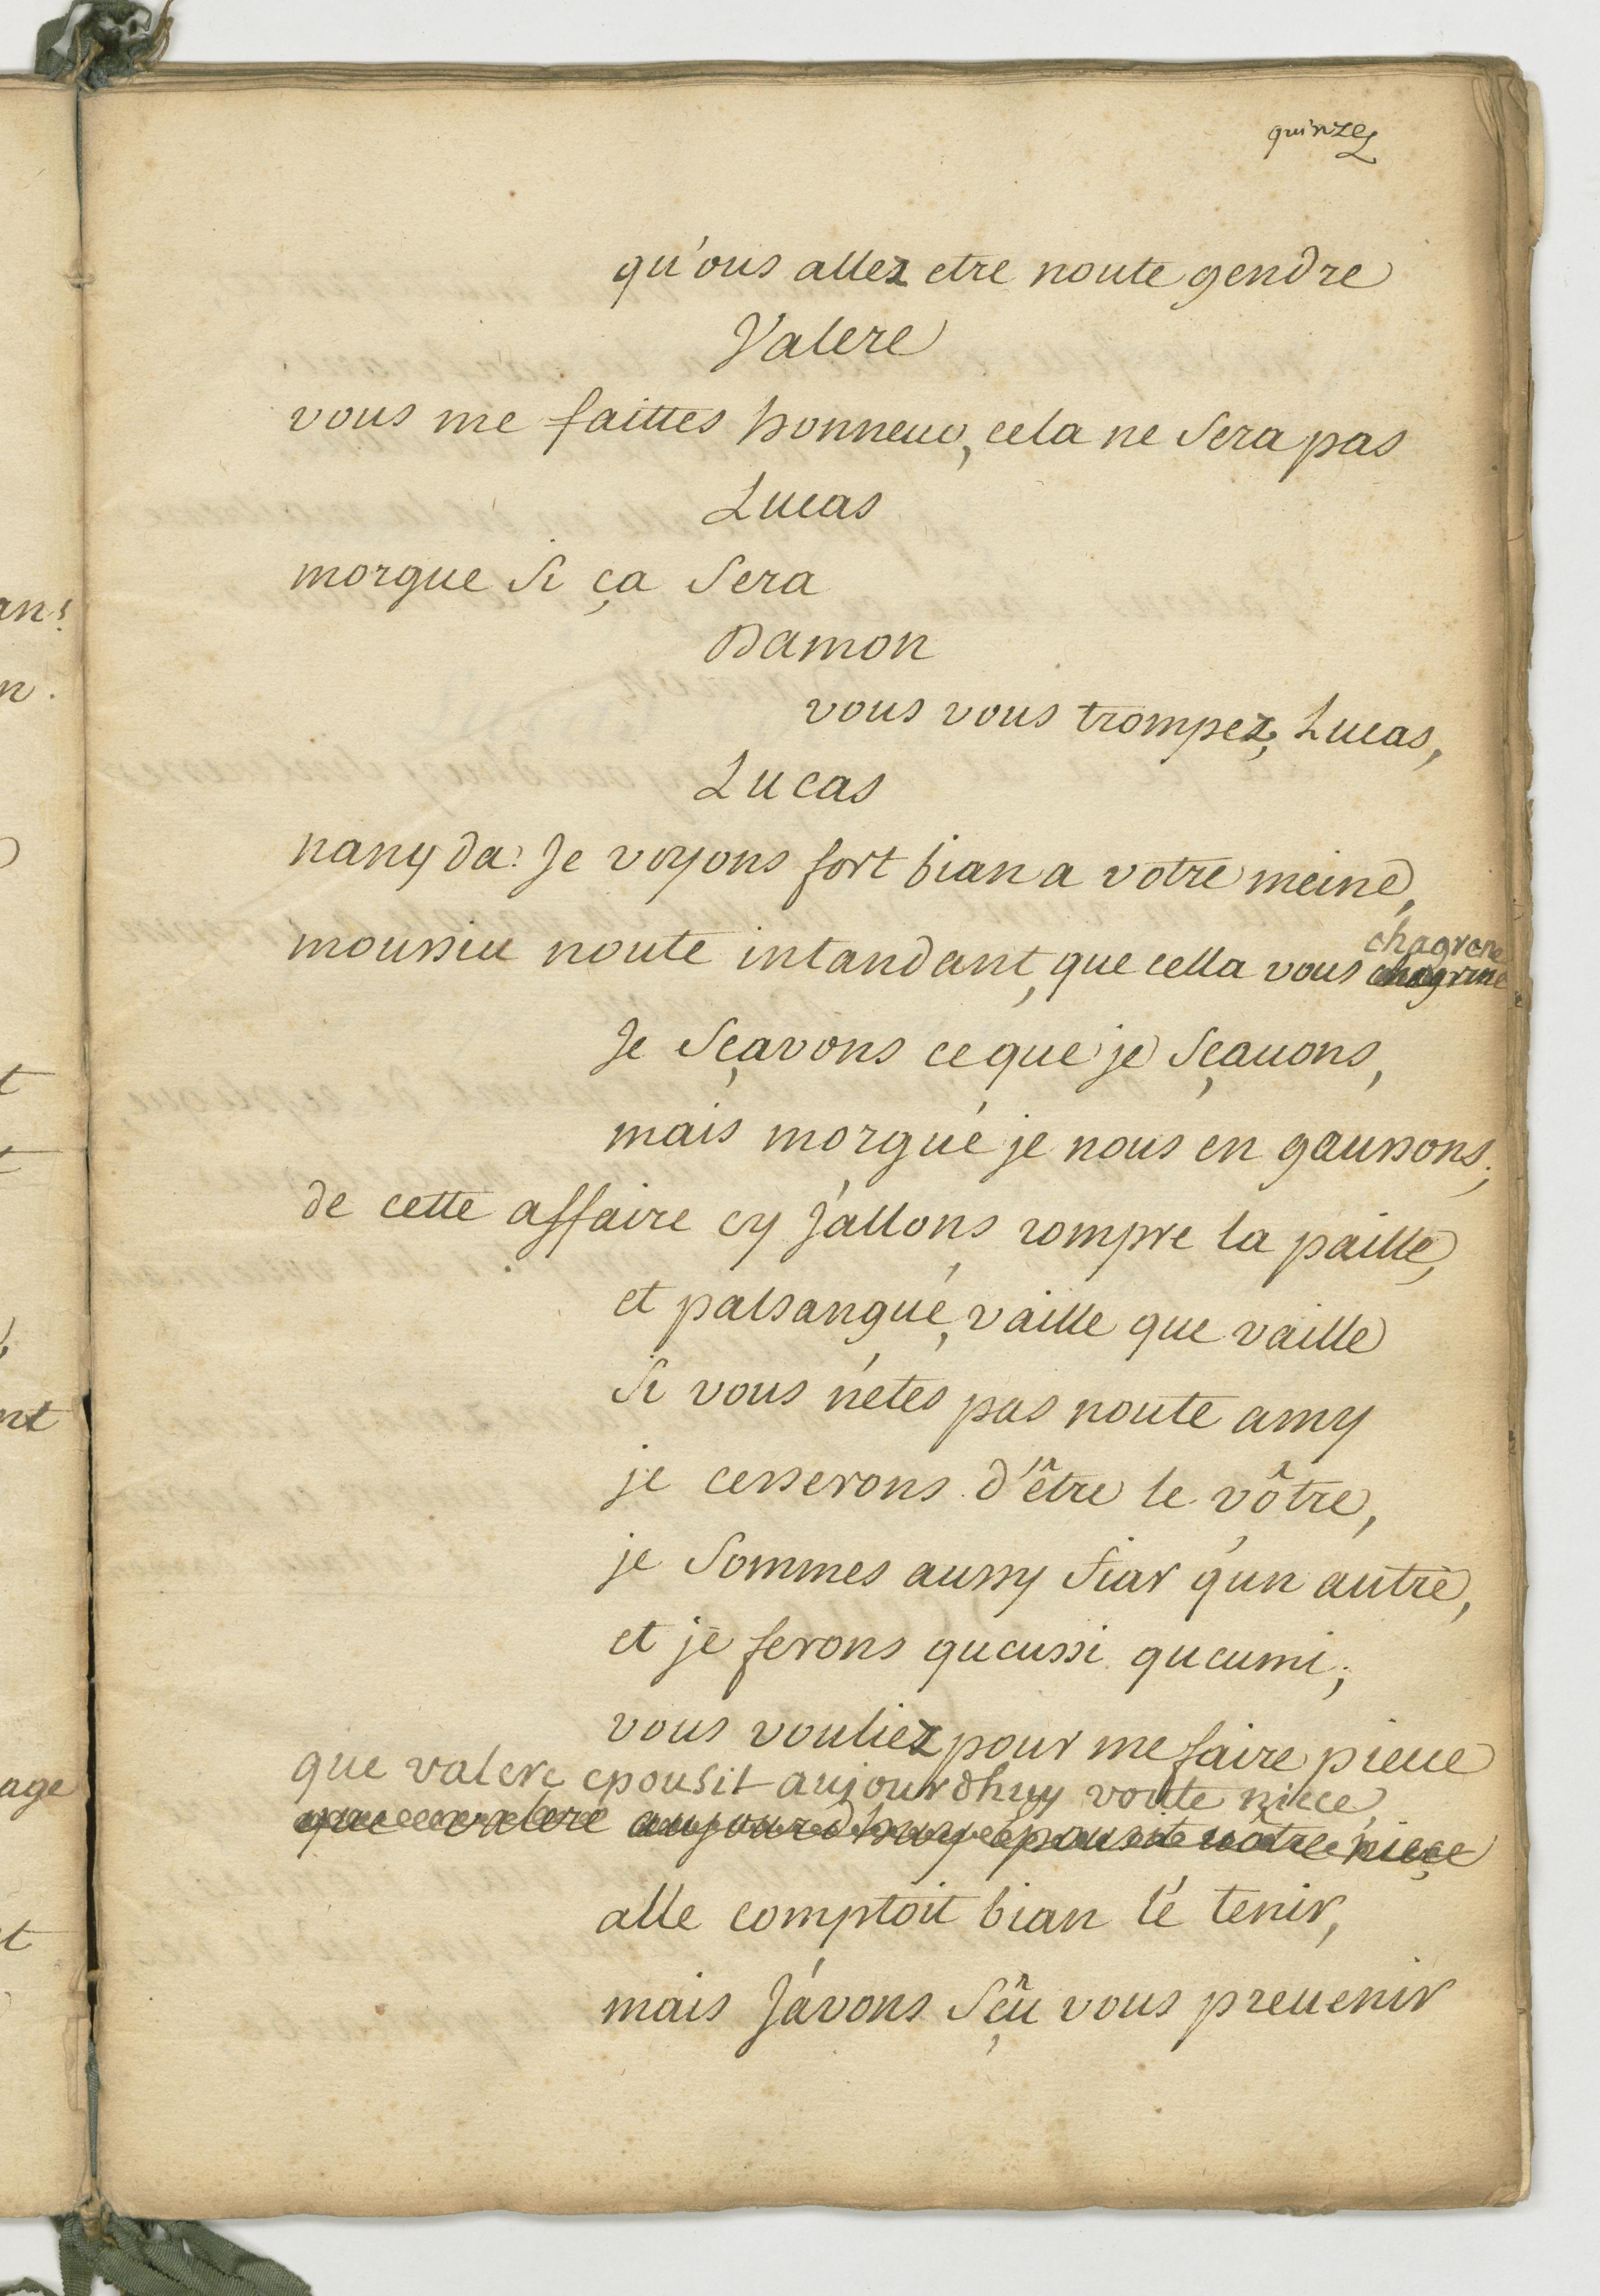 quinze
qu'ous allez etre noute gendre
Valere
vous me faittes honneur, cela ne sera pas
Lucas
morgue si ça sera
Damon
vous vous trompez, Lucas,
Lucas
nany da! Je voyons fort bian a votre meine,
moussieu noute intandant, que cella vous chagrine
chagrene
Je sçavons ce que je sçauons,
mais morgué je nous en gaussons;
de cette affaire cy j'allons rompre la paille,
et palsangué, vaille que vaille
si vous n'etes pas noute amy
je cesserons d'être le vôtre,
je sommes aussy fiar qu'un autre,
et je ferons queussi queumi;
vous vouliez pour me faire pieue
que valere epousit aujourdhuy voute niece,
que valere aujourd'huy epousit vôtre niece
alle comptoit bian le tenir,
mais j'avons sçû vous preuenir
an!
n.
t
nt
age
t